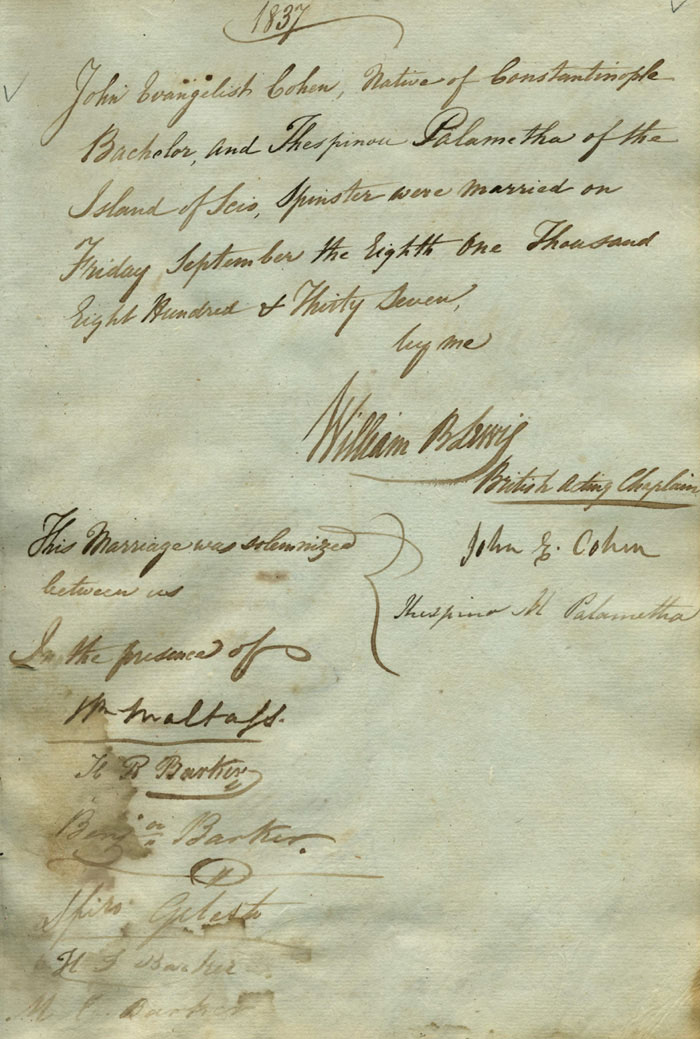 1837
John Evangelist Cohen, Native of Constantinople
Bachelor, and Thespinou Palametha of the
Island of Scio, Spinster were married on
Friday September the Eighth One Thousand
Eight Hundred & Thirty Seven,
by me
William B Lewis
British Acting Chaplain
This Marriage was solemnized
between us
John E. Cohen
Thespino M Palametha
In the presence of
Wm Maltass.
H R Barker
Benjn Barker.
Spiro
Barker
M Barker